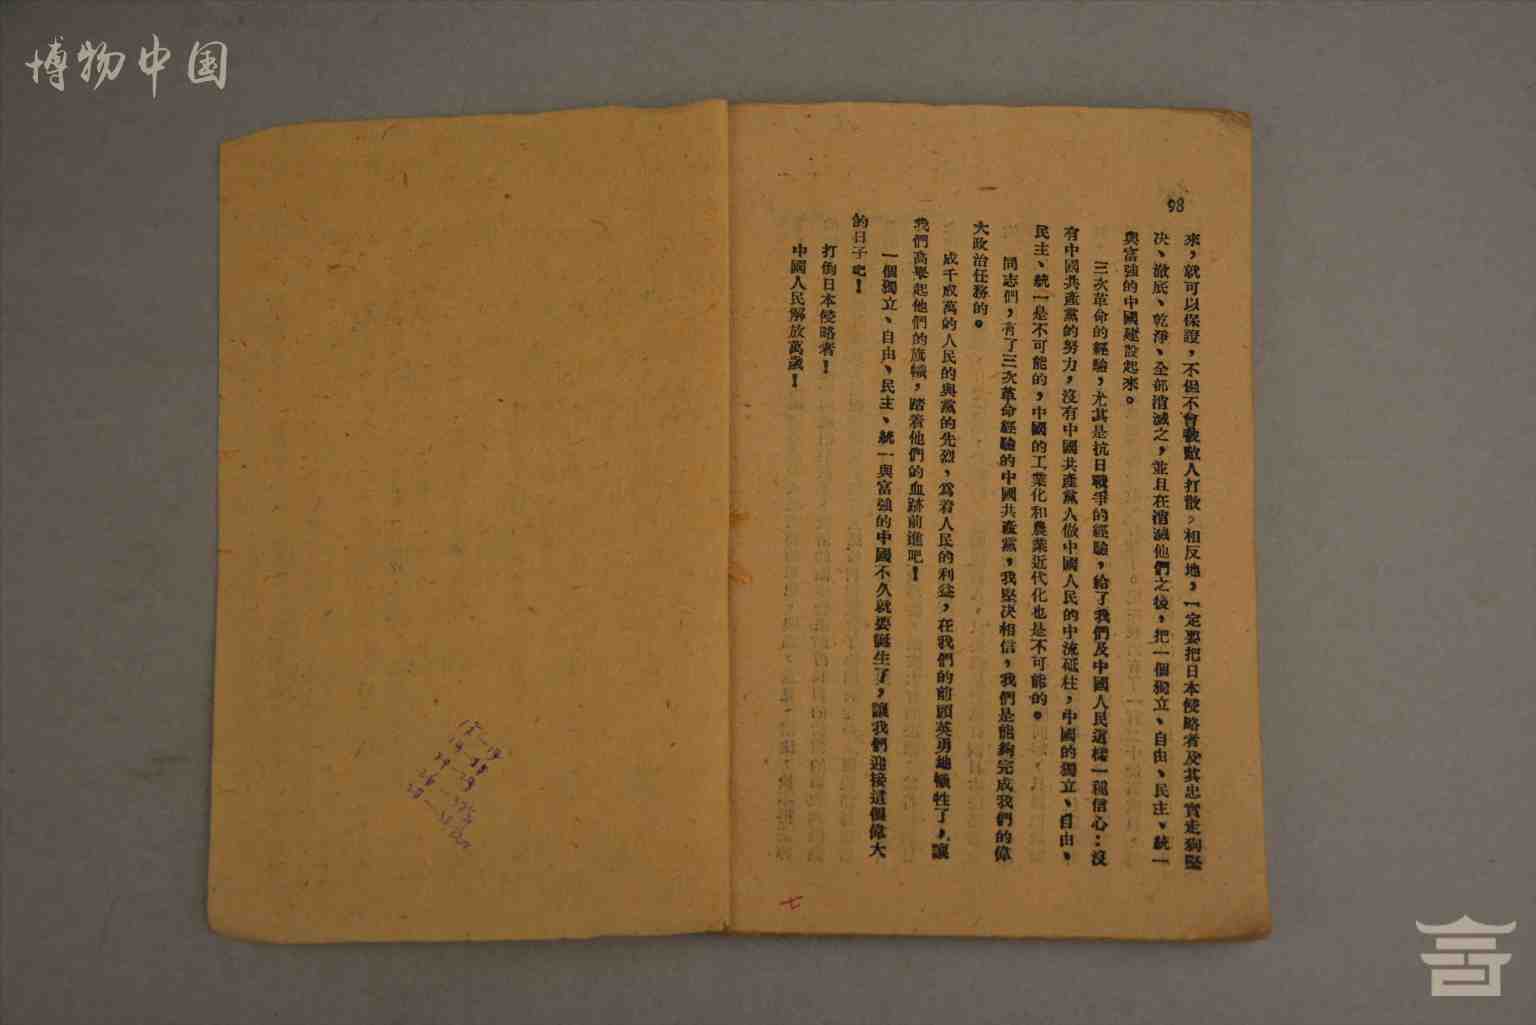 博物中国
98
來，就可以保證，不但不會被敵人打散，相反地，一定要把日本侵略者及其忠實走狗堅
决、澈底、乾淨、全部消滅之，並且在消滅他們之後，把一個獨立、自由、民主、統一
與富強的中國建設起來。
三次革命的經驗，尤其是抗日戰爭的經驗，給了我們及中國人民這樣一種信心：沒
有中國共產黨的努力，沒有中國共產黨人做中國人民的中流砥柱，中國的獨立、自由、
民主、統一是不可能的，中國的工業化和農業近代化也是不可能的。
同志們，有了三次革命經驗的中國共產黨，我堅决相信，我們是能夠完成我們的偉
大政治任務的。
成千成萬的人民的與黨的先烈，爲着人民的利益，在我們的前頭英勇地犧牲了，讓
我們高舉起他們的旗幟，踏着他們的血跡前進吧！
一個獨立、自由、民主、統一與富強的中國不久就要誕生了，讓我們迎接這個偉大
的日子吧！
打倒日本侵略者！
中國人民解放萬歲！
七